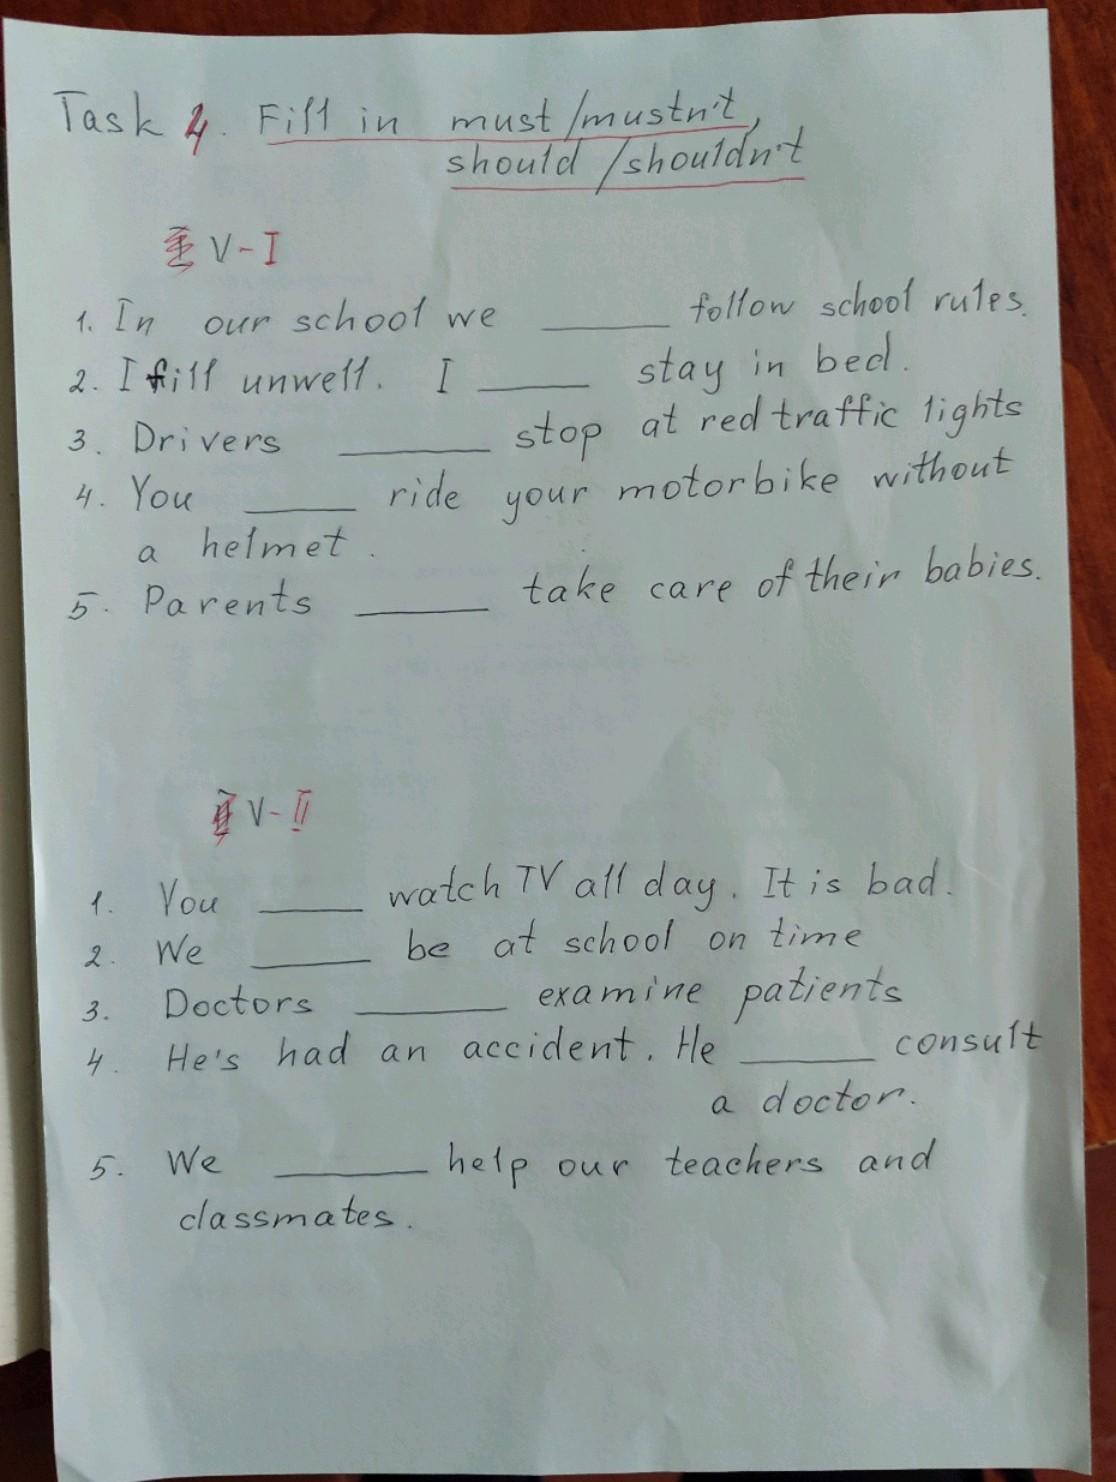 Task 4. Fill in must/mustn't,
should/shouldn't
V-I
1. In our school we ______ follow school rules.
2. I fill unwell. I ______ stay in bed.
3. Drivers ______ stop at red traffic lights
4. You ______ ride your motorbike without
a helmet.
5. Parents ______ take care of their babies.
V-II
1. You ______ watch TV all day. It is bad.
2. We ______ be at school on time
3. Doctors ______ examine patients
4. He's had an accident. He ______ consult
a doctor.
5. We ______ help our teachers and
classmates.